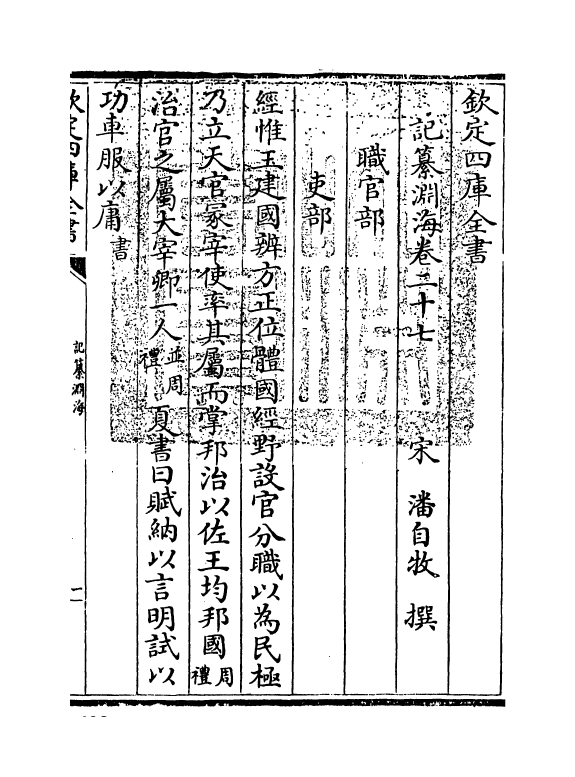 欽定四庫全書
記纂淵海卷二十七　宋　潘自牧　撰
職官部
吏部
經惟王建國辨方正位體國經野設官分職以為民極
乃立天官冢宰使率其屬而掌邦治以佐王均邦國周禮
治官之屬大宰卿一人並周禮夏書曰賦納以言明試以
功車服以庸書
欽定四庫全書
記纂淵海